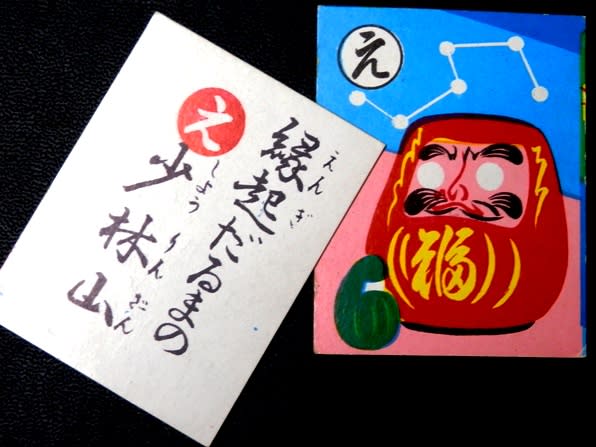 え
縁起だるまの
えんぎ
少林山
しょうりんざん
え
福